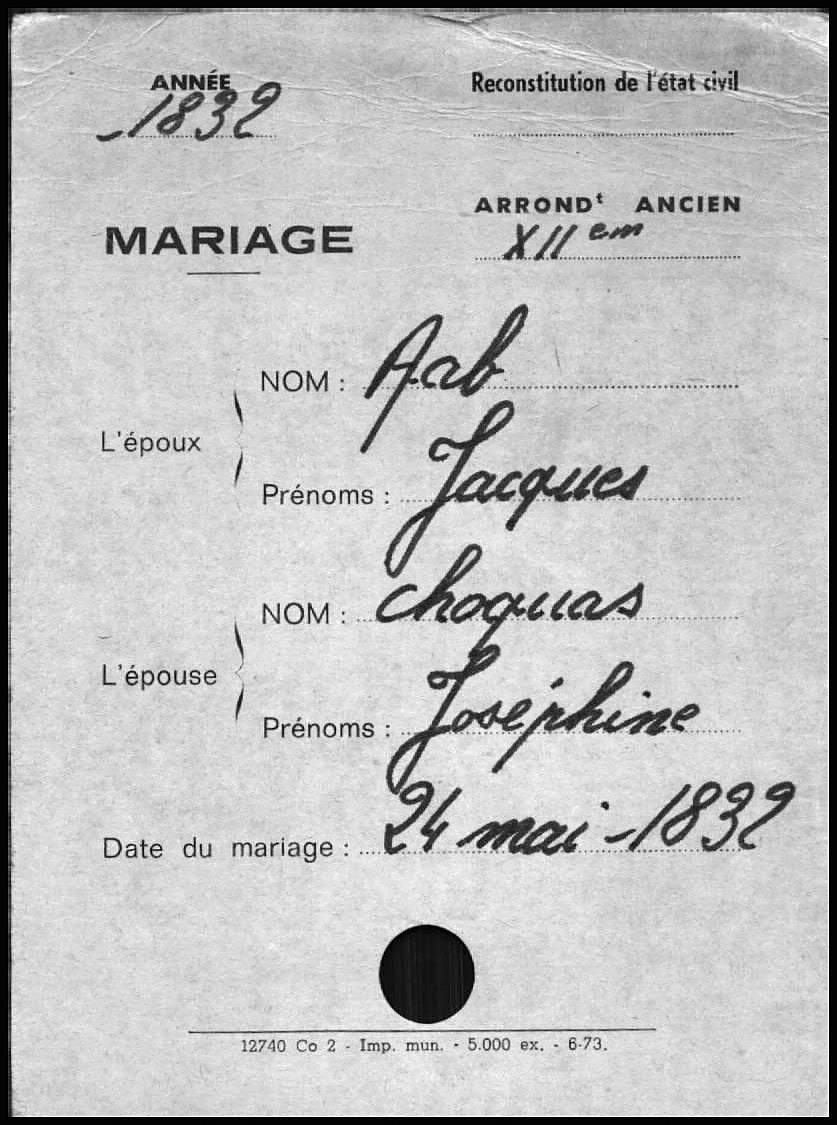 ANNÉE
1832
Reconstitution de l'état civil
ARROND^t ANCIEN
XII em
MARIAGE
L'époux
NOM : Aab
Prénoms : Jacques
L'épouse
NOM : Choquas
Prénoms : Joséphine
Date du mariage : 24 mai - 1832
12740 Co 2 - Imp. mun. - 5.000 ex. - 6-73.